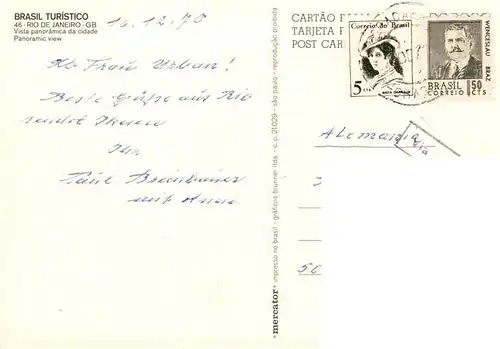 BRASIL TURÍSTICO
46 - RIO DE JANEIRO - GB
Vista panorâmica da cidade
Panoramic view
10.12.70
Frau Urban!
Beste Grüße aus Rio
sendet Ihnen
Ihr
Paul
mit Anna
*mercator* impresso no brasil - gráficos brunner ltda. - c.p. 21029 - são paulo - reprodução proibida
CARTÃO
TARJETA
POST CAR
Correio do Brasil
5 cts
WENCESLAU BRAZ
BRASIL 50
CORREIO CTS
Alemanha
50